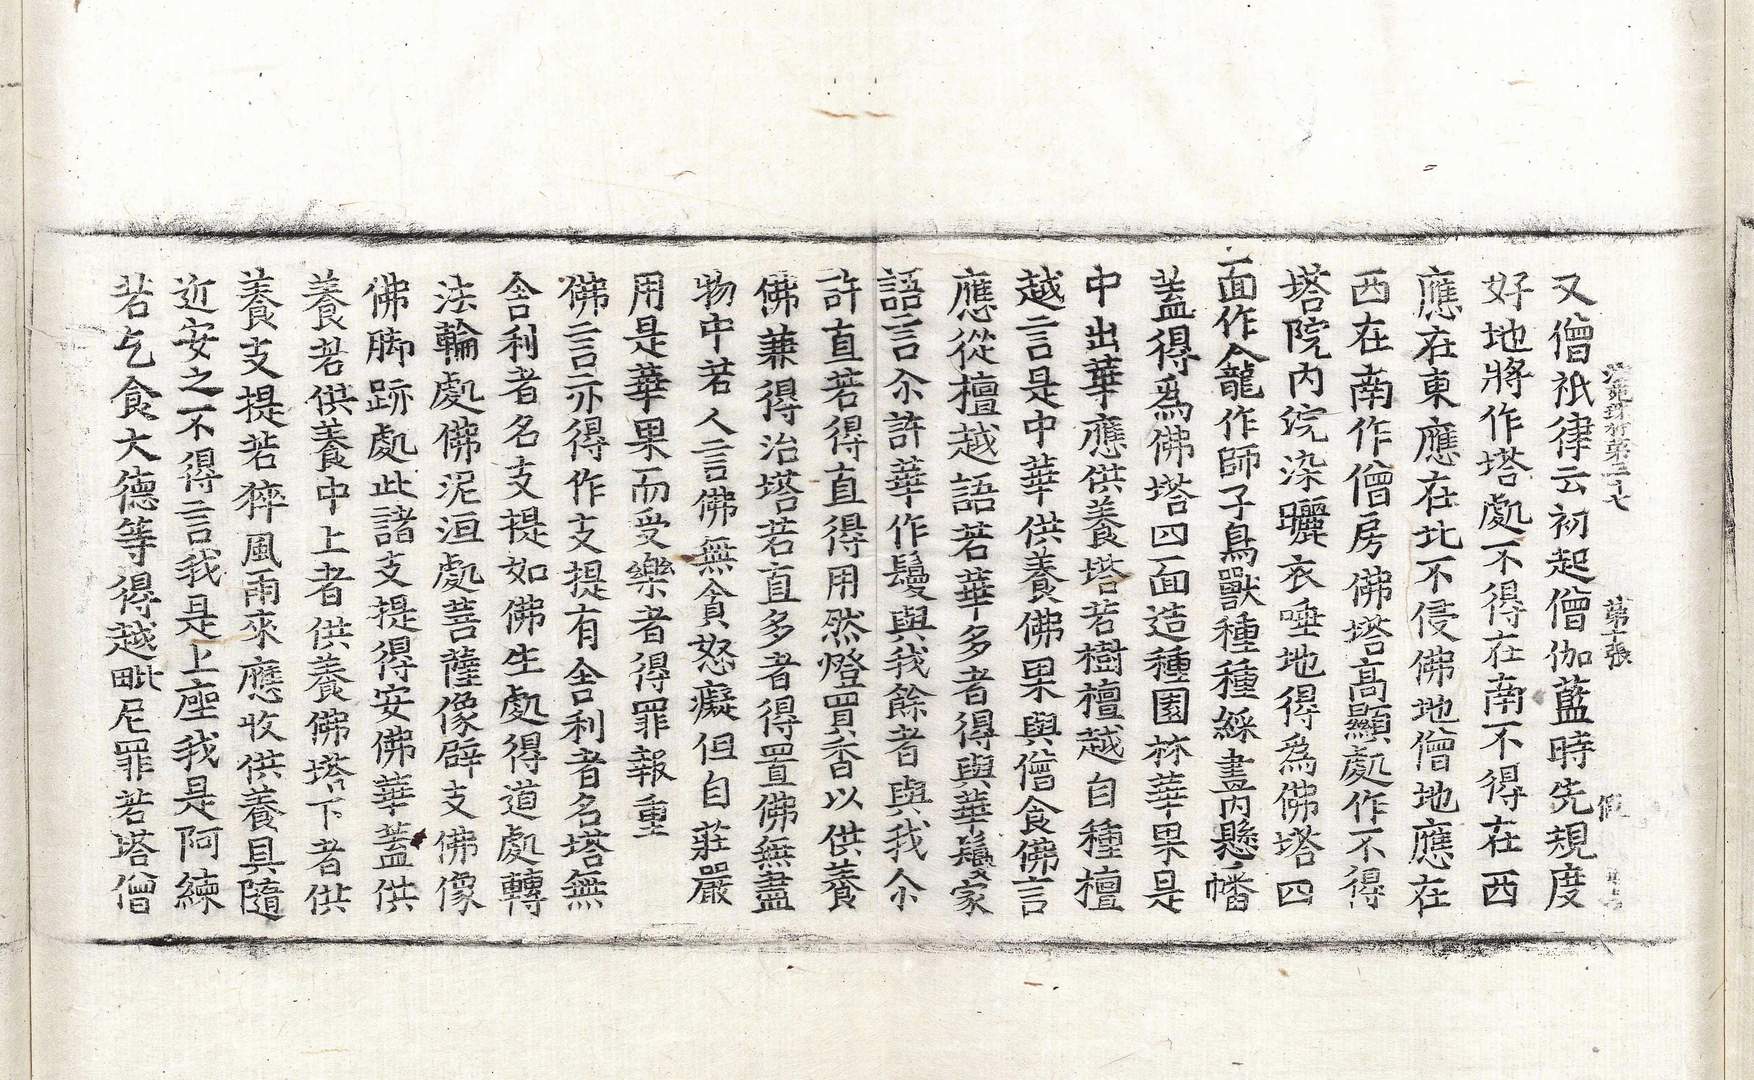 法苑珠林第三十七 第十張
又僧祇律云初起僧伽藍時先規度
好地將作塔處不得在南不得在西
應在東應在北不侵佛地僧地應在
西在南作僧房佛塔高顯處作不得
塔院內浣染曬衣唾地得爲佛塔四
面作龕作師子鳥獸種種綵畫內懸幡
蓋得爲佛塔四面造種園林華果是
中出華應供養塔若樹檀越自種檀
越言是中華供養佛果與僧食佛言
應從檀越語若華多者得與華鬘家
語言尒許華作鬘與我餘者與我尒
許直若得直得用然燈買香以供養
佛兼得治塔若直多者得置佛無盡
物中若人言佛無貪怒癡但自莊嚴
用是華果而受樂者得罪報重
佛言亦得作支提有舍利者名塔無
舍利者名支提如佛生處得道處轉
法輪處佛泥洹處菩薩像辟支佛像
佛脚跡處此諸支提得安佛華蓋供
養若供養中上者供養佛塔下者供
養支提若猝風雨來應收供養具隨
近安之不得言我是上座我是阿練
若乞食大德等得越毗尼罪若塔僧